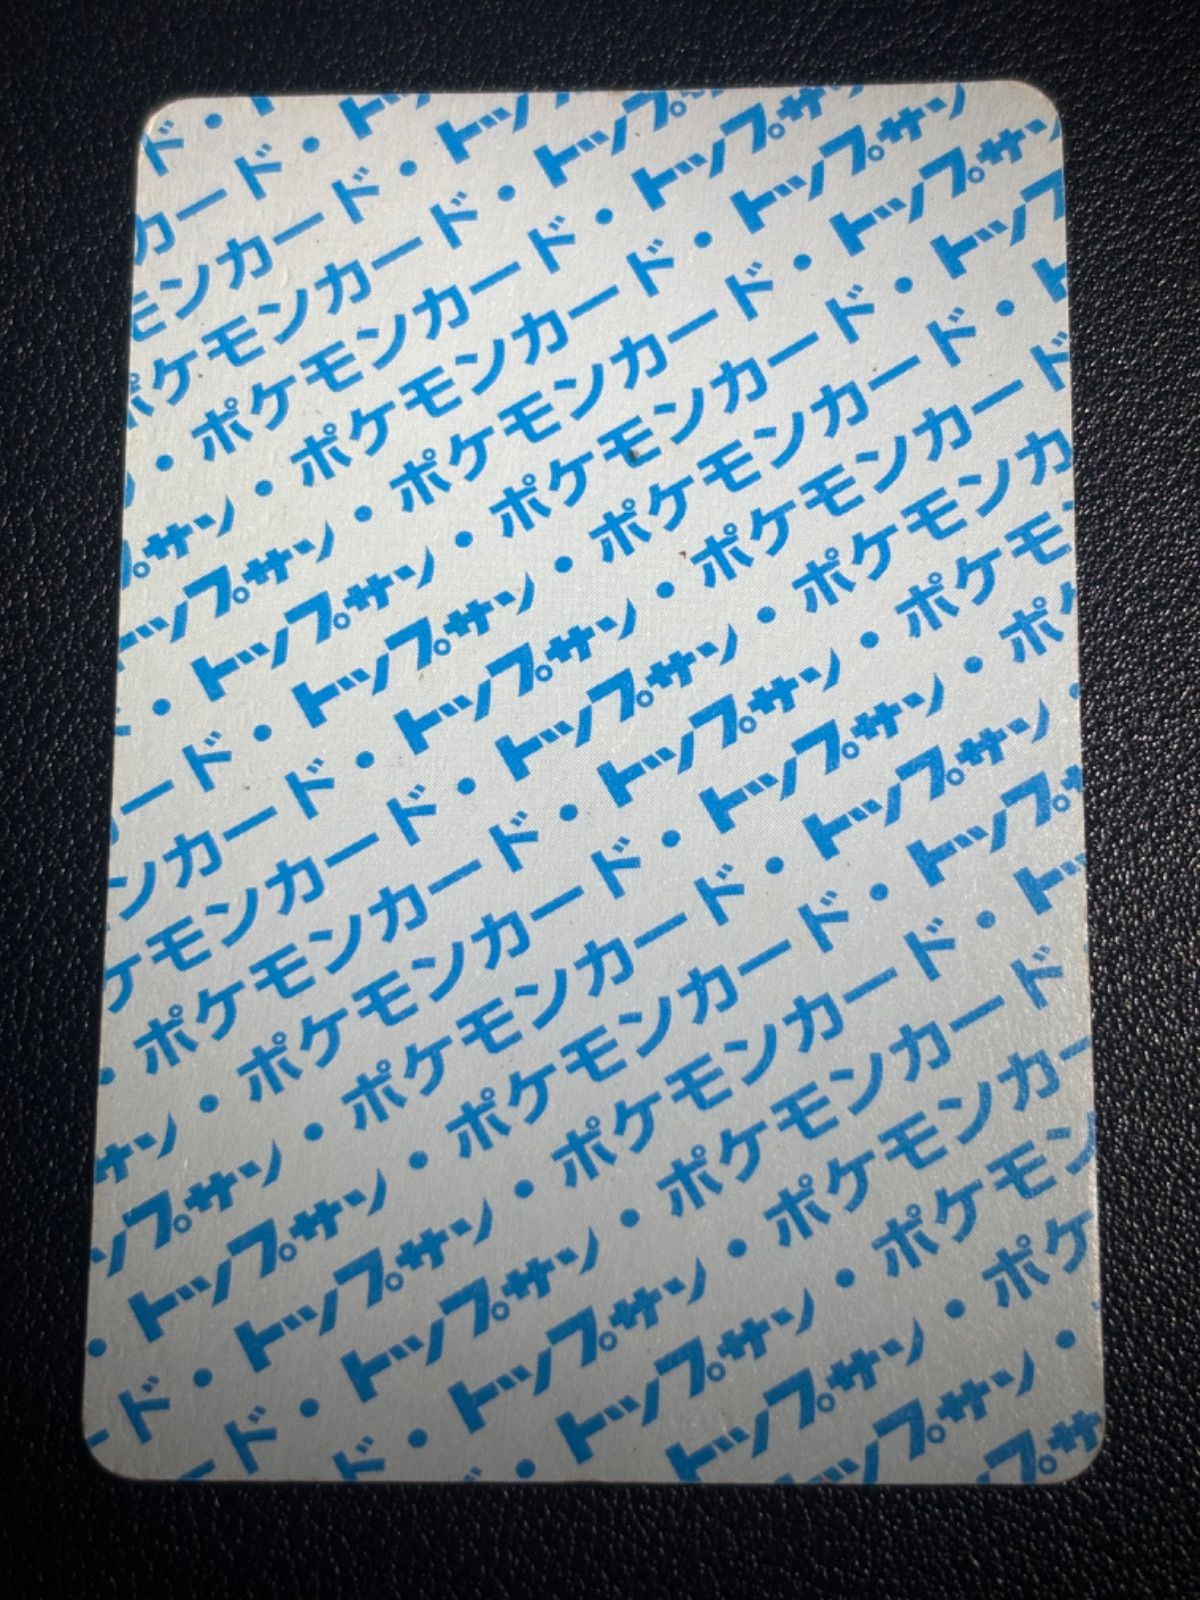 ド・ト
カード・ト
モンカード・トッ
ポケモンカード・トップ
・ポケモンカード・トップサ
プサン・ポケモンカード・トップサン
トップサン・ポケモンカード・トップサン
・トップサン・ポケモンカード・トップ
ード・トップサン・ポケモンカード・ト
ンカード・トップサン・ポケモンカード
ケモンカード・トップサン・ポケモンカ
・ポケモンカード・トップサン・ポケモ
サン・ポケモンカード・トップサン・ポ
ップサン・ポケモンカード・トップサン・
・トップサン・ポケモンカード・トップ
ド・トップサン・ポケモンカード・トッ
ード・トップサン・ポケモンカード
ド・トップサン・ポケモンカー
・トップサン・ポケモン
トップサン・ポケ
ップサン・
プサ